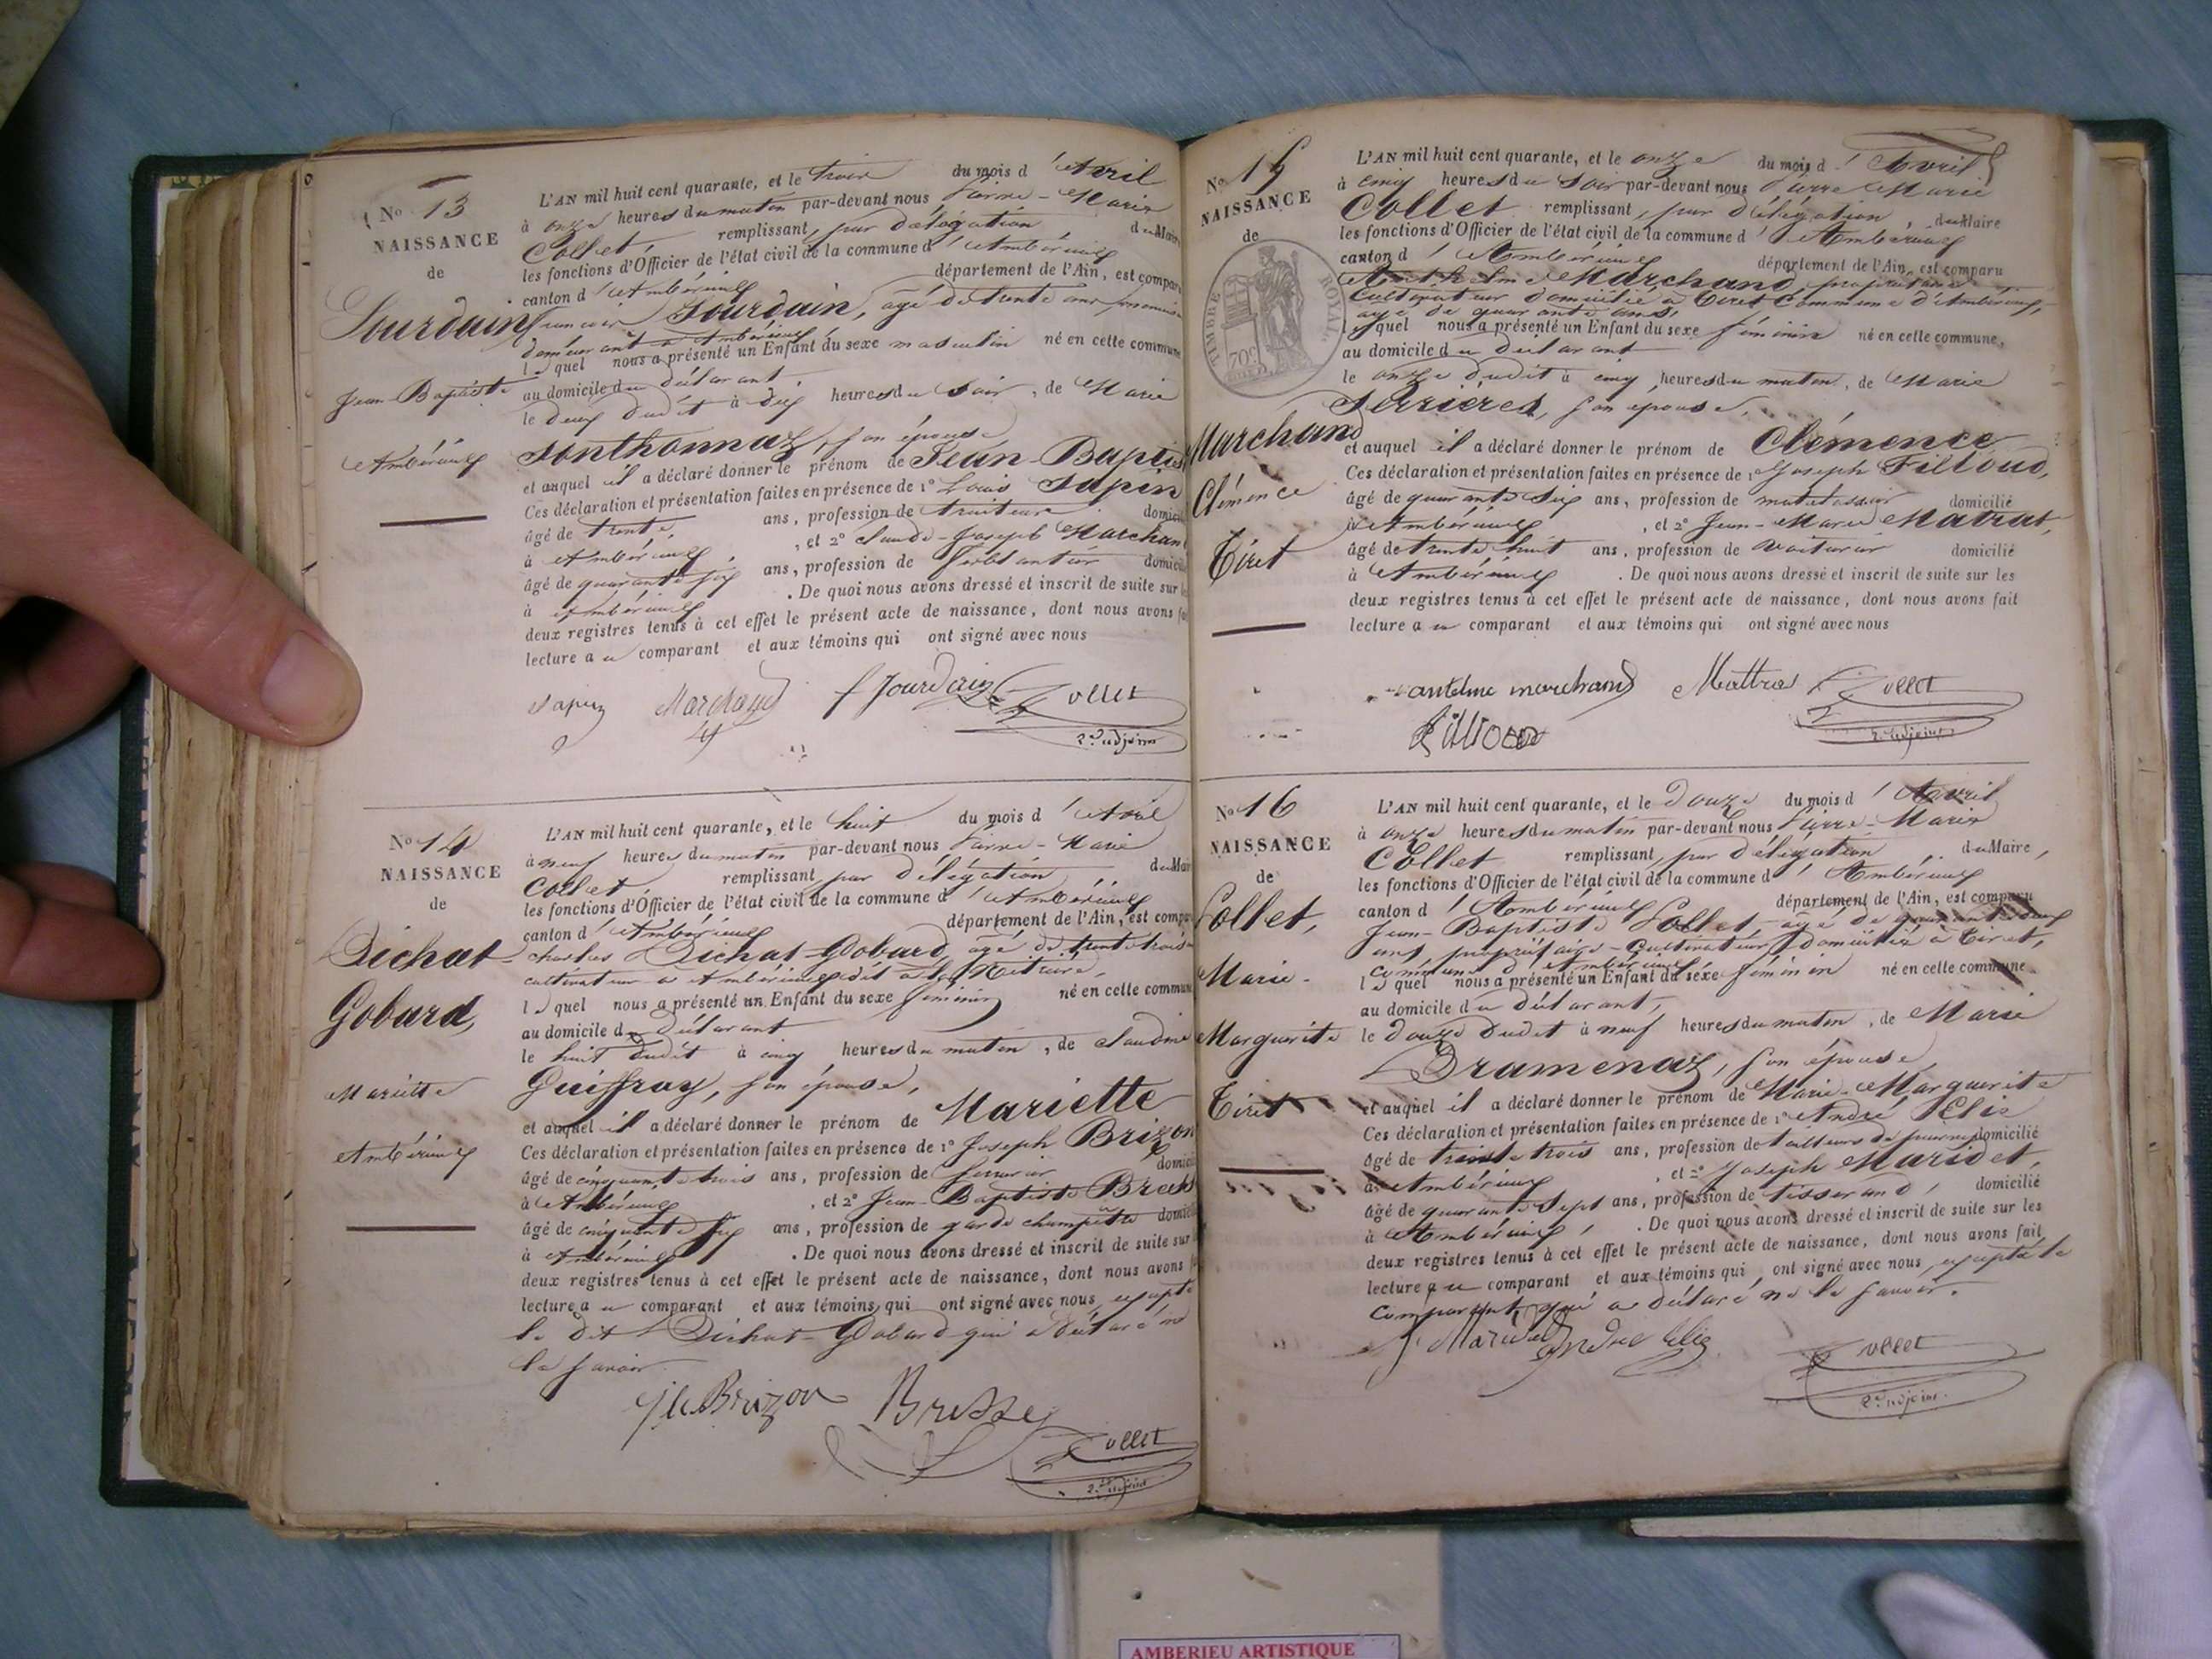 No 13
NAISSANCE
de
Jourdain
Jean-Baptiste
Ambérieux
L'AN mil huit cent quarante, et le trois du mois d'Avril
à onze heures du matin par-devant nous Pierre-Marie
Collet remplissant, par délégation du Maire
les fonctions d'Officier de l'état civil de la commune d'Ambérieux
canton d'Ambérieux département de l'Ain, est comparu
François Jourdain, âgé de trente ans
demeurant à Ambérieux
lequel nous a présenté un Enfant du sexe masculin né en cette commune
au domicile du déclarant
le deux dudit à dix heures du soir, de Marie
Sonthonnaz, son épouse
et auquel il a déclaré donner le prénom de Jean-Baptiste
Ces déclaration et présentation faites en présence de 1° Louis Sapin
âgé de trente ans, profession de traiteur domicilié
à Ambérieux, et 2° Claude-Joseph Marchand
âgé de quarante six ans, profession de ferblantier domicilié
à Ambérieux. De quoi nous avons dressé et inscrit de suite sur les
deux registres tenus à cet effet le présent acte de naissance, dont nous avons fait
lecture au comparant et aux témoins qui ont signé avec nous
Sapin Marchand f Jourdain Collet
2d adjoint
No 14
NAISSANCE
de
Dichat-
Gobard,
Mariette
Ambérieux
L'AN mil huit cent quarante, et le huit du mois d'Avril
à neuf heures du matin par-devant nous Pierre-Marie
Collet remplissant par délégation du Maire
les fonctions d'Officier de l'état civil de la commune d'Ambérieux
canton d'Ambérieux département de l'Ain, est comparu
Charles Dichat-Gobard, âgé de trente trois
cultivateur à Ambérieux
lequel nous a présenté un Enfant du sexe féminin né en cette commune
au domicile du déclarant
le huit dudit à cinq heures du matin, de Claudine
Guiffray, son épouse,
et auquel il a déclaré donner le prénom de Mariette
Ces déclaration et présentation faites en présence de 1° Joseph Brizon
âgé de cinquante trois ans, profession de domicilié
à Ambérieux, et 2° Jean-Baptiste
âgé de cinquante six ans, profession de garde champêtre domicilié
à Ambérieux. De quoi nous avons dressé et inscrit de suite sur les
deux registres tenus à cet effet le présent acte de naissance, dont nous avons fait
lecture au comparant et aux témoins qui ont signé avec nous, excepté
le dit Dichat-Gobard qui a déclaré ne
le savoir.
Brizon Collet
2d adjoint
No 15
NAISSANCE
de
TIMBRE ROYAL
70c
Marchand
Clémence
Tiret
L'AN mil huit cent quarante, et le onze du mois d'Avril
à cinq heures du soir par-devant nous Pierre Marie
Collet remplissant, par délégation, du Maire
les fonctions d'Officier de l'état civil de la commune d'Ambérieux
canton d'Ambérieux département de l'Ain, est comparu
Anthelme Marchand, propriétaire
cultivateur domicilié à Tiret commune d'Ambérieux,
âgé de quarante ans,
lequel nous a présenté un Enfant du sexe féminin né en cette commune,
au domicile du déclarant
le onze dudit à cinq heures du matin, de Marie
Serrieres, son épouse,
et auquel il a déclaré donner le prénom de Clémence
Ces déclaration et présentation faites en présence de 1° Joseph Filloud,
âgé de quarante six ans, profession de domicilié
à Ambérieux, et 2° Jean-Marie Matrat,
âgé de trente huit ans, profession de voiturier domicilié
à Ambérieux. De quoi nous avons dressé et inscrit de suite sur les
deux registres tenus à cet effet le présent acte de naissance, dont nous avons fait
lecture au comparant et aux témoins qui ont signé avec nous
antelme marchand Mattras Collet
2d adjoint
Filloud
No 16
NAISSANCE
de
Collet,
Marie-
Marguerite
Tiret
L'AN mil huit cent quarante, et le douze du mois d'Avril
à onze heures du matin par-devant nous Pierre-Marie
Collet remplissant, par délégation du Maire,
les fonctions d'Officier de l'état civil de la commune d'Ambérieux
canton d'Ambérieux département de l'Ain, est comparu
Jean-Baptiste Collet âgé de quarante deux
ans, propriétaire-cultivateur, domicilié à Tiret,
commune d'Ambérieux
lequel nous a présenté un Enfant du sexe féminin né en cette commune
au domicile du déclarant,
le douze dudit à neuf heures du matin, de Marie
Dramenaz, son épouse,
et auquel il a déclaré donner le prénom de Marie-Marguerite
Ces déclaration et présentation faites en présence de 1° André Félix
âgé de trente trois ans, profession de tailleur de pierres domicilié
à Ambérieux, et 2° Joseph Maridet,
âgé de quarante sept ans, profession de tisserand, domicilié
à Ambérieux. De quoi nous avons dressé et inscrit de suite sur les
deux registres tenus à cet effet le présent acte de naissance, dont nous avons fait
lecture au comparant et aux témoins qui ont signé avec nous, excepté le
comparant qui a déclaré ne le savoir.
J Maridet Collet
2d adjoint
AMBERIEU ARTISTIQUE